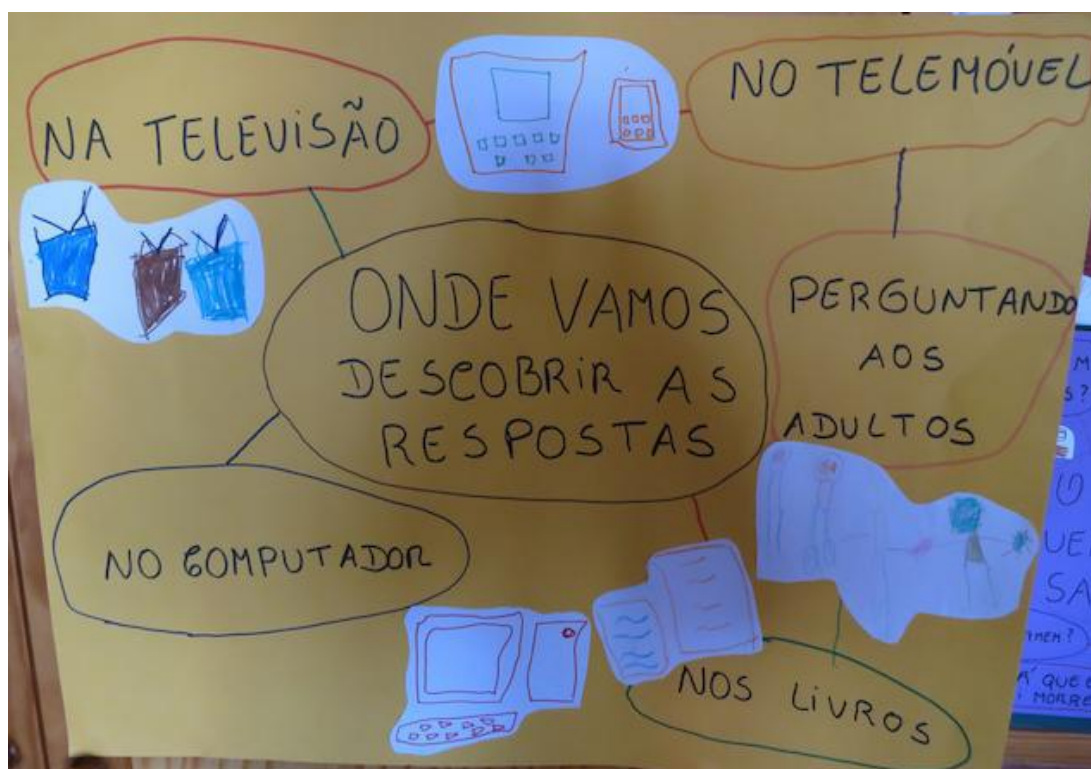 NA TELEVISÃO
NO TELEMÓVEL
ONDE VAMOS
DESCOBRIR AS
RESPOSTAS
PERGUNTANDO
AOS
ADULTOS
NO COMPUTADOR
NOS LIVROS